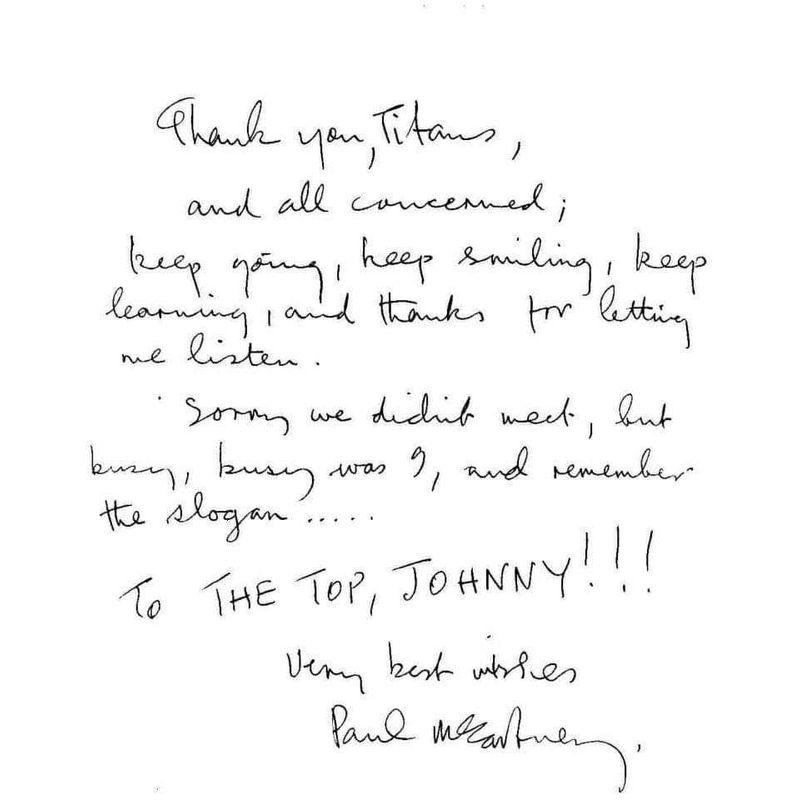 Thank you, Titans,
and all concerned;
keep going, keep smiling, keep
learning, and thanks for letting
me listen.
Sorry we didn't meet, but
busy, busy was I, and remember
the slogan .....
TO THE TOP, JOHNNY!!!
Very best wishes
Paul McCartney.